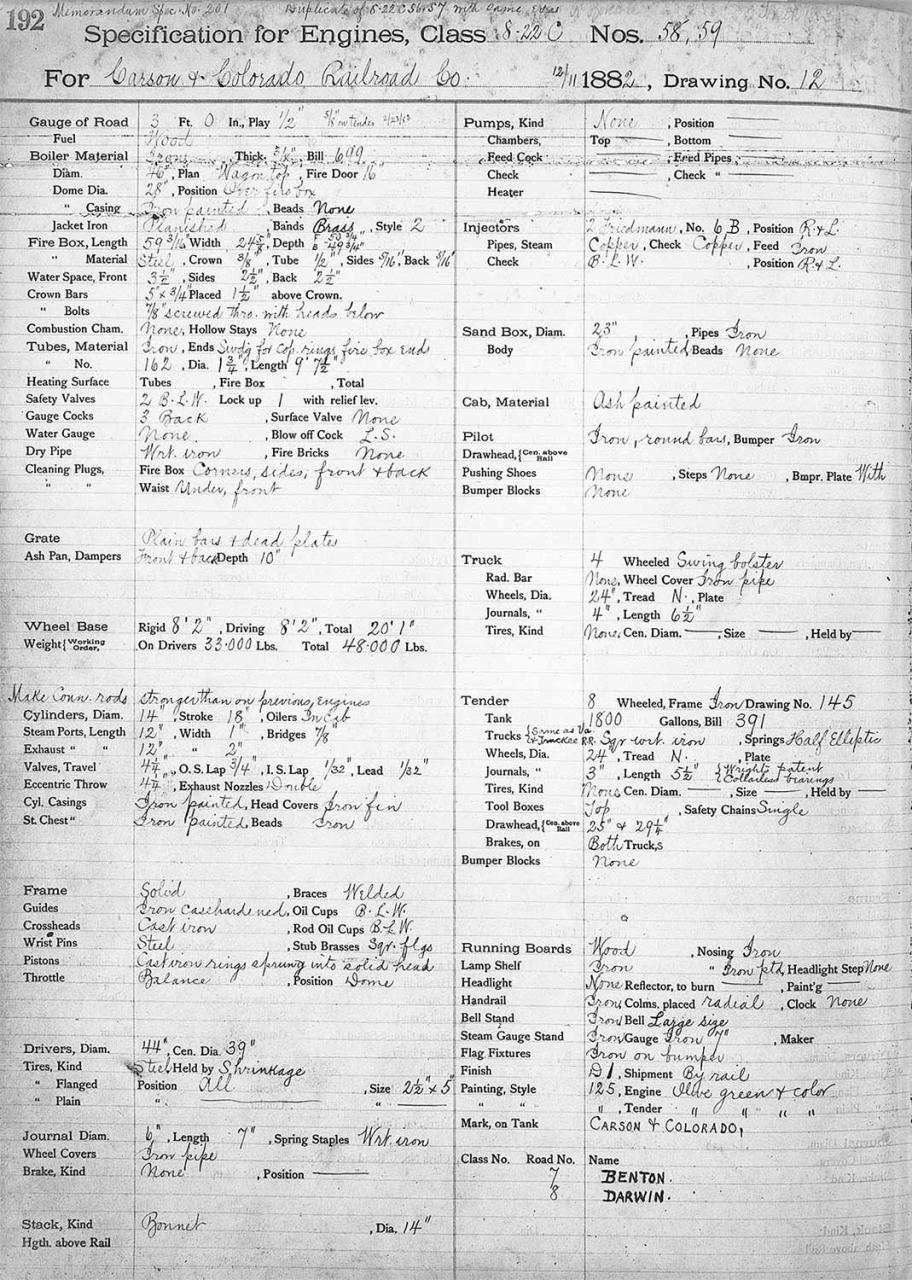 192 Memorandum Spec. No. 201 Duplicate of 8-22 C 56 & 57 with same extras
Specification for Engines, Class 8-22 C Nos. 58, 59
For Carson & Colorado Railroad Co. 12/11 1882, Drawing No. 12
Gauge of Road 3 Ft. 0 In., Play 1/2" 5/8" on tender
Fuel Wood
Boiler Material Iron, Thick. 3/8", Bill 699
Diam. 46", Plan Wagon top, Fire Door 16"
Dome Dia. 28", Position Over fire box
" Casing Iron painted, Beads None
Jacket Iron Planished, Bands Brass, Style 2
Fire Box, Length 59 3/16" Width 24 5/8", Depth
" Material Steel, Crown 3/8", Tube 1/2", Sides 5/16" Back 5/16"
Water Space, Front 3 1/2", Sides 2 1/2", Back 2 1/2"
Crown Bars 5" x 3/4" Placed 1 1/2" above Crown.
" Bolts 7/8" screwed thro. with heads below
Combustion Cham. None, Hollow Stays None
Tubes, Material Iron, Ends Swdg for cop. rings fire box end
" No. 162, Dia. 1 3/4", Length 9' 7 1/2"
Heating Surface Tubes , Fire Box , Total
Safety Valves 2 B.L.W. Lock up 1 with relief lev.
Gauge Cocks 3 Back , Surface Valve None
Water Gauge None. , Blow off Cock L.S.
Dry Pipe Wrt. iron , Fire Bricks None
Cleaning Plugs, Fire Box Corners, sides, front & back
" " Waist Under, front
Grate Plain bars & dead plates
Ash Pan, Dampers Front & back Depth 10"
Wheel Base Rigid 8' 2", Driving 8' 2", Total 20' 1"
Weight {Working Order, On Drivers 33.000 Lbs. Total 48.000 Lbs.
Make Conn. rods stronger than on previous engines
Cylinders, Diam. 14", Stroke 18", Oilers In Cab
Steam Ports, Length 12", Width 1", Bridges 7/8"
Exhaust " " 12" " 2"
Valves, Travel 4 1/2", O. S. Lap 3/4", I. S. Lap 1/32", Lead 1/32"
Eccentric Throw 4 1/2", Exhaust Nozzles Double
Cyl. Casings Iron painted, Head Covers Iron fin
St. Chest " Iron painted, Beads Iron
Frame Solid , Braces Welded
Guides Iron casehardened, Oil Cups B.L.W.
Crossheads Cast iron , Rod Oil Cups B.L.W.
Wrist Pins Steel , Stub Brasses Sqr. flgs
Pistons Cast iron rings sprung into solid head
Throttle Balance , Position Dome
Drivers, Diam. 44", Cen. Dia. 39"
Tires, Kind Steel Held by Shrinkage
" Flanged Position All , Size 2 1/2" x 5"
" Plain " "
Journal Diam. 6", Length 7", Spring Staples Wrt. iron
Wheel Covers Iron pipe
Brake, Kind None , Position
Stack, Kind Bonnet , Dia. 14"
Hgth. above Rail
Pumps, Kind None , Position
Chambers, Top , Bottom
Feed Cock , Feed Pipes
Check , Check "
Heater
Injectors 2 Friedmann, No. 6 B, Position R. & L.
Pipes, Steam Copper, Check Copper, Feed Iron
Check B.L.W. , Position R. & L.
Sand Box, Diam. 23" , Pipes Iron
Body Iron painted Beads None
Cab, Material Ash painted
Pilot Iron, round bars, Bumper Iron
Drawhead, {Cen. above Rail
Pushing Shoes None , Steps None , Bmpr. Plate With
Bumper Blocks None
Truck 4 Wheeled Swing bolster
Rad. Bar None, Wheel Cover Iron pipe
Wheels, Dia. 24", Tread N., Plate
Journals, " 4", Length 6 1/2"
Tires, Kind None, Cen. Diam. , Size , Held by
Tender 8 Wheeled, Frame Iron, Drawing No. 145
Tank 1800 Gallons, Bill 391
Trucks {Same as Va. & Truckee R.R. Sqr wrt. iron , Springs Half Elliptic
Wheels, Dia. 24", Tread N. , Plate
Journals, " 3", Length 5 1/2" {Wrights patent Collarless bearings
Tires, Kind None Cen. Diam. , Size , Held by
Tool Boxes Top , Safety Chains Single
Drawhead, {Cen. above Rail 25" & 29 1/4"
Brakes, on Both Trucks
Bumper Blocks None
Running Boards Wood , Nosing Iron
Lamp Shelf Iron " Iron ptd, Headlight Step None
Headlight None Reflector, to burn , Paint'g
Handrail Iron, Colms, placed radial , Clock None
Bell Stand Iron Bell Large size
Steam Gauge Stand Iron Gauge Iron 7" , Maker
Flag Fixtures Iron on bumper
Finish D 1, Shipment By rail
Painting, Style 125, Engine Olive green & color
" " " , Tender " " " "
Mark, on Tank CARSON & COLORADO,
Class No. Road No. Name
7 BENTON.
8 DARWIN.